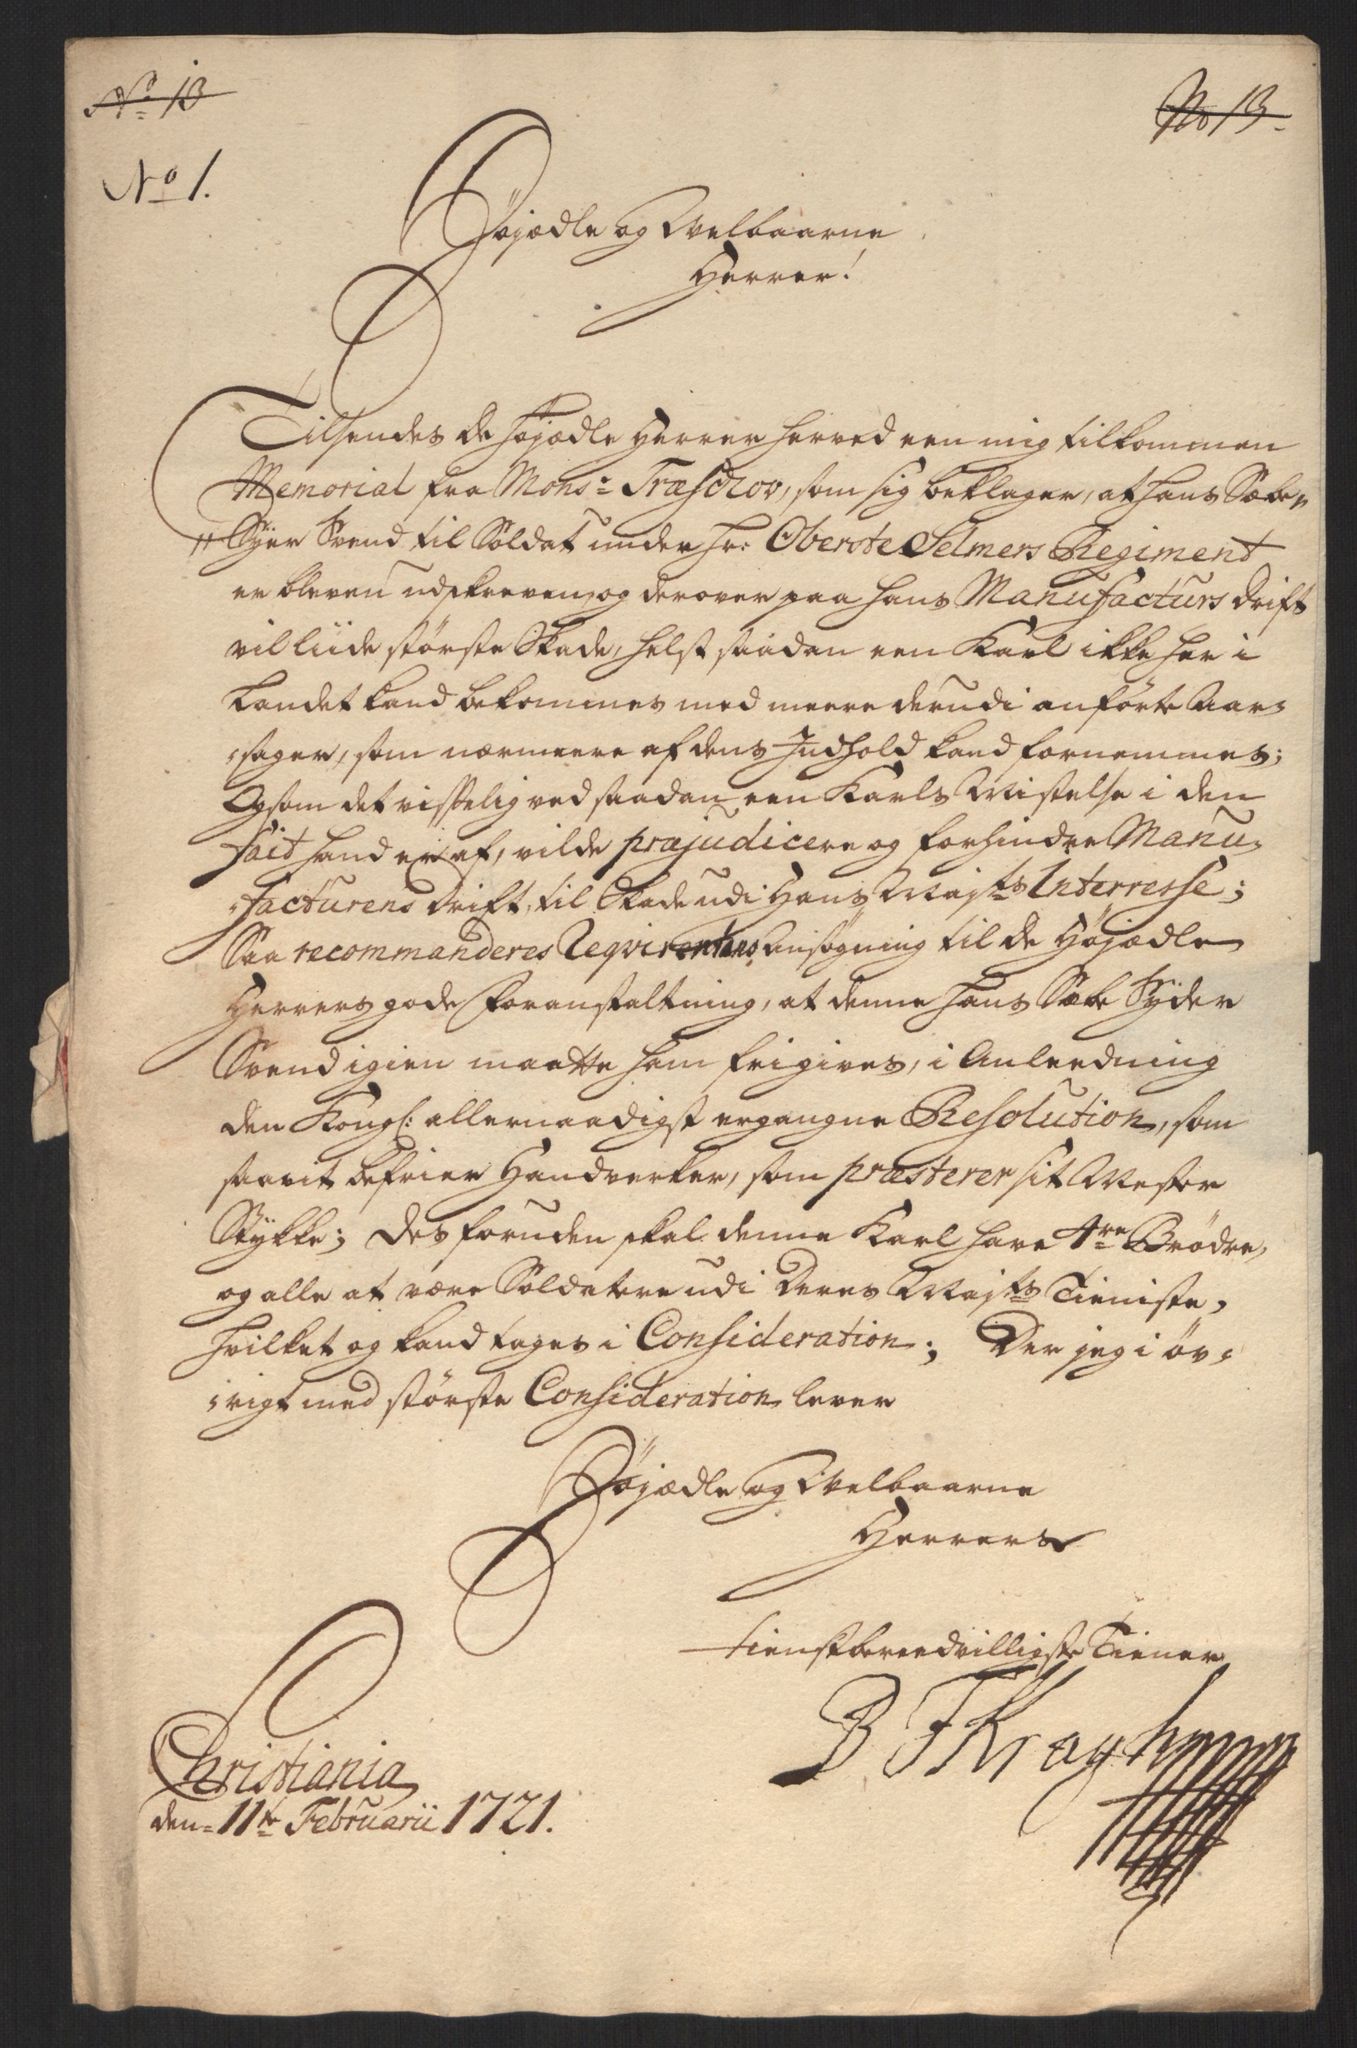 No 13
No 13
No 1.
Høyædle og Velbaarne
Herrer!
Tilsendes de høyædle Herrer herved een mig tilkommen
Memorial fra Monsr: Træschow, som sig beklager, at hans Sæbe
Syer Svend til Soldat under Hr: Oberste Selmers Regiment
er bleven udskreven, og derover paa hans Manufacturs drift
vil liide største Skade, helst saadan een Karl ikke her i
Landet kand bekommes med meere derudi anførte Aar-
sager, som nærmeere af dens Indhold kand fornemmes;
Og som det visselig ved saadan een Karls Mistelse i den
fait hand er af, vilde præjudicere og forhindre Manu-
facturens drift, til Skade udi Hans Mayts Interresse;
Saa recommanderes Reqvirentens Ansøgning til de Høyædle
Herrers gode Foranstaltning, at denne hans Sæbe Syder
Svend igien maatte ham frigives, i Anleedning
den Kongl: allernaadigst ergangne Resolution, som
saavit befrier Handverker, som præsterer sit Mester
Stykke; Desforuden skal denne Karl have 4re Brødre,
og alle at være Soldatere udi Deres Mayts Tieniste,
hvilket og kand tages i Consideration; Der jeg i øv-
rigt med største Consideration lever
Høyædle og Velbaarne
Herrers
tienstbereedvilligste Tiener
B F Kragh
Christiania
den 11te Februarii 1721.